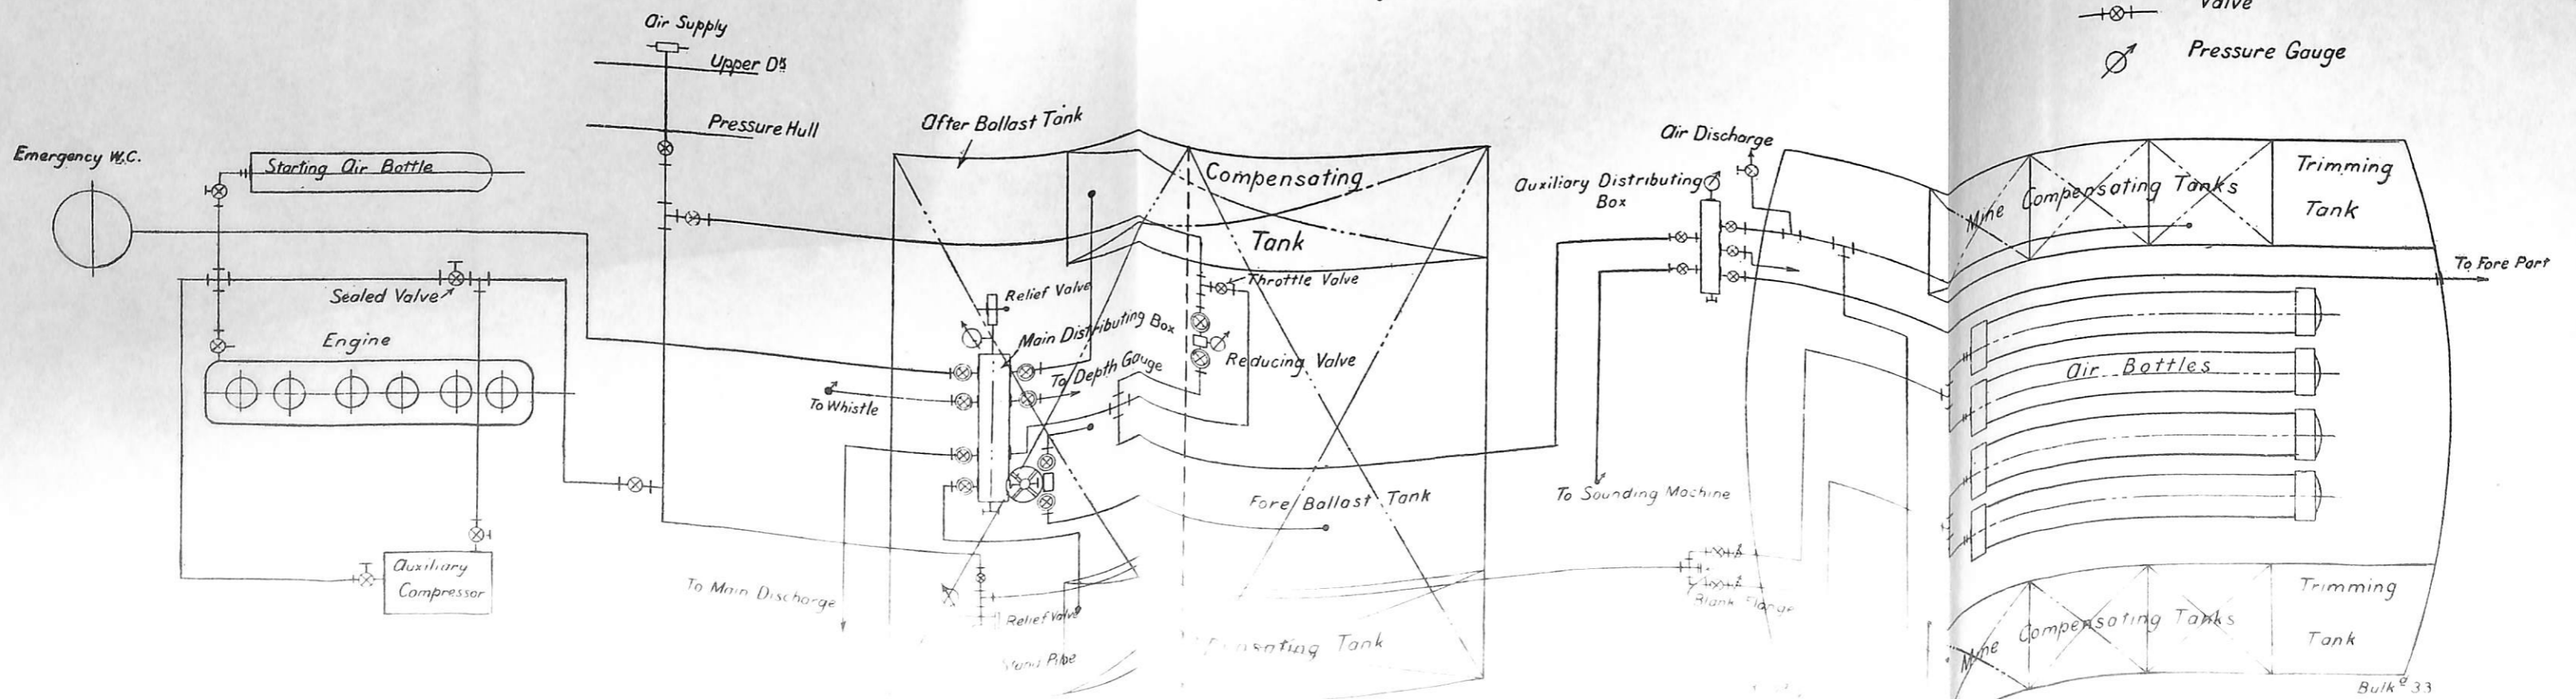 Valve
Pressure Gauge
Air Supply
Upper Dk
Pressure Hull
Emergency W.C.
Starting Air Bottle
Sealed Valve
Engine
Auxiliary
Compressor
After Ballast Tank
Compensating
Tank
Relief Valve
Throttle Valve
Main Distributing Box
To Depth Gauge
Reducing Valve
To Whistle
Fore Ballast Tank
To Main Discharge
Relief Valve
Pipe
Tank
Air Discharge
Auxiliary Distributing
Box
To Sounding Machine
Blank Flange
Mine Compensating Tanks
Trimming
Tank
To Fore Part
Air Bottles
Mine Compensating Tanks
Trimming
Tank
Bulkd 33